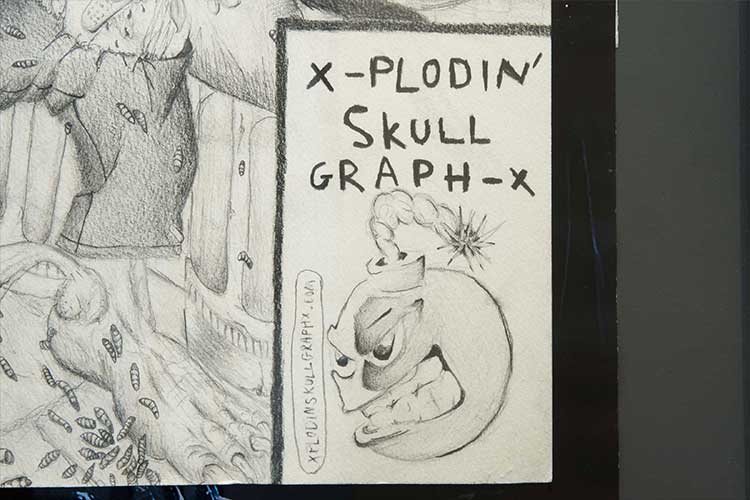 X-PLODIN'
SKULL
GRAPH-X
XPLODINSKULLGRAPHX.COM